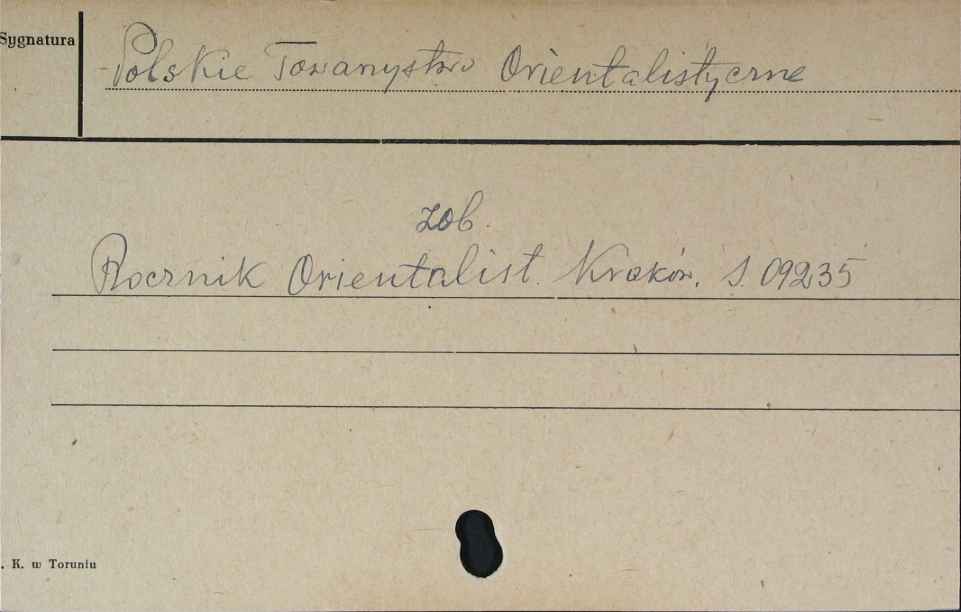 Sygnatura
Polskie Towarzystwo Orientalistyczne
zob.
Rocznik Orientalist. Kraków. S. 09235
. K. w Toruniu